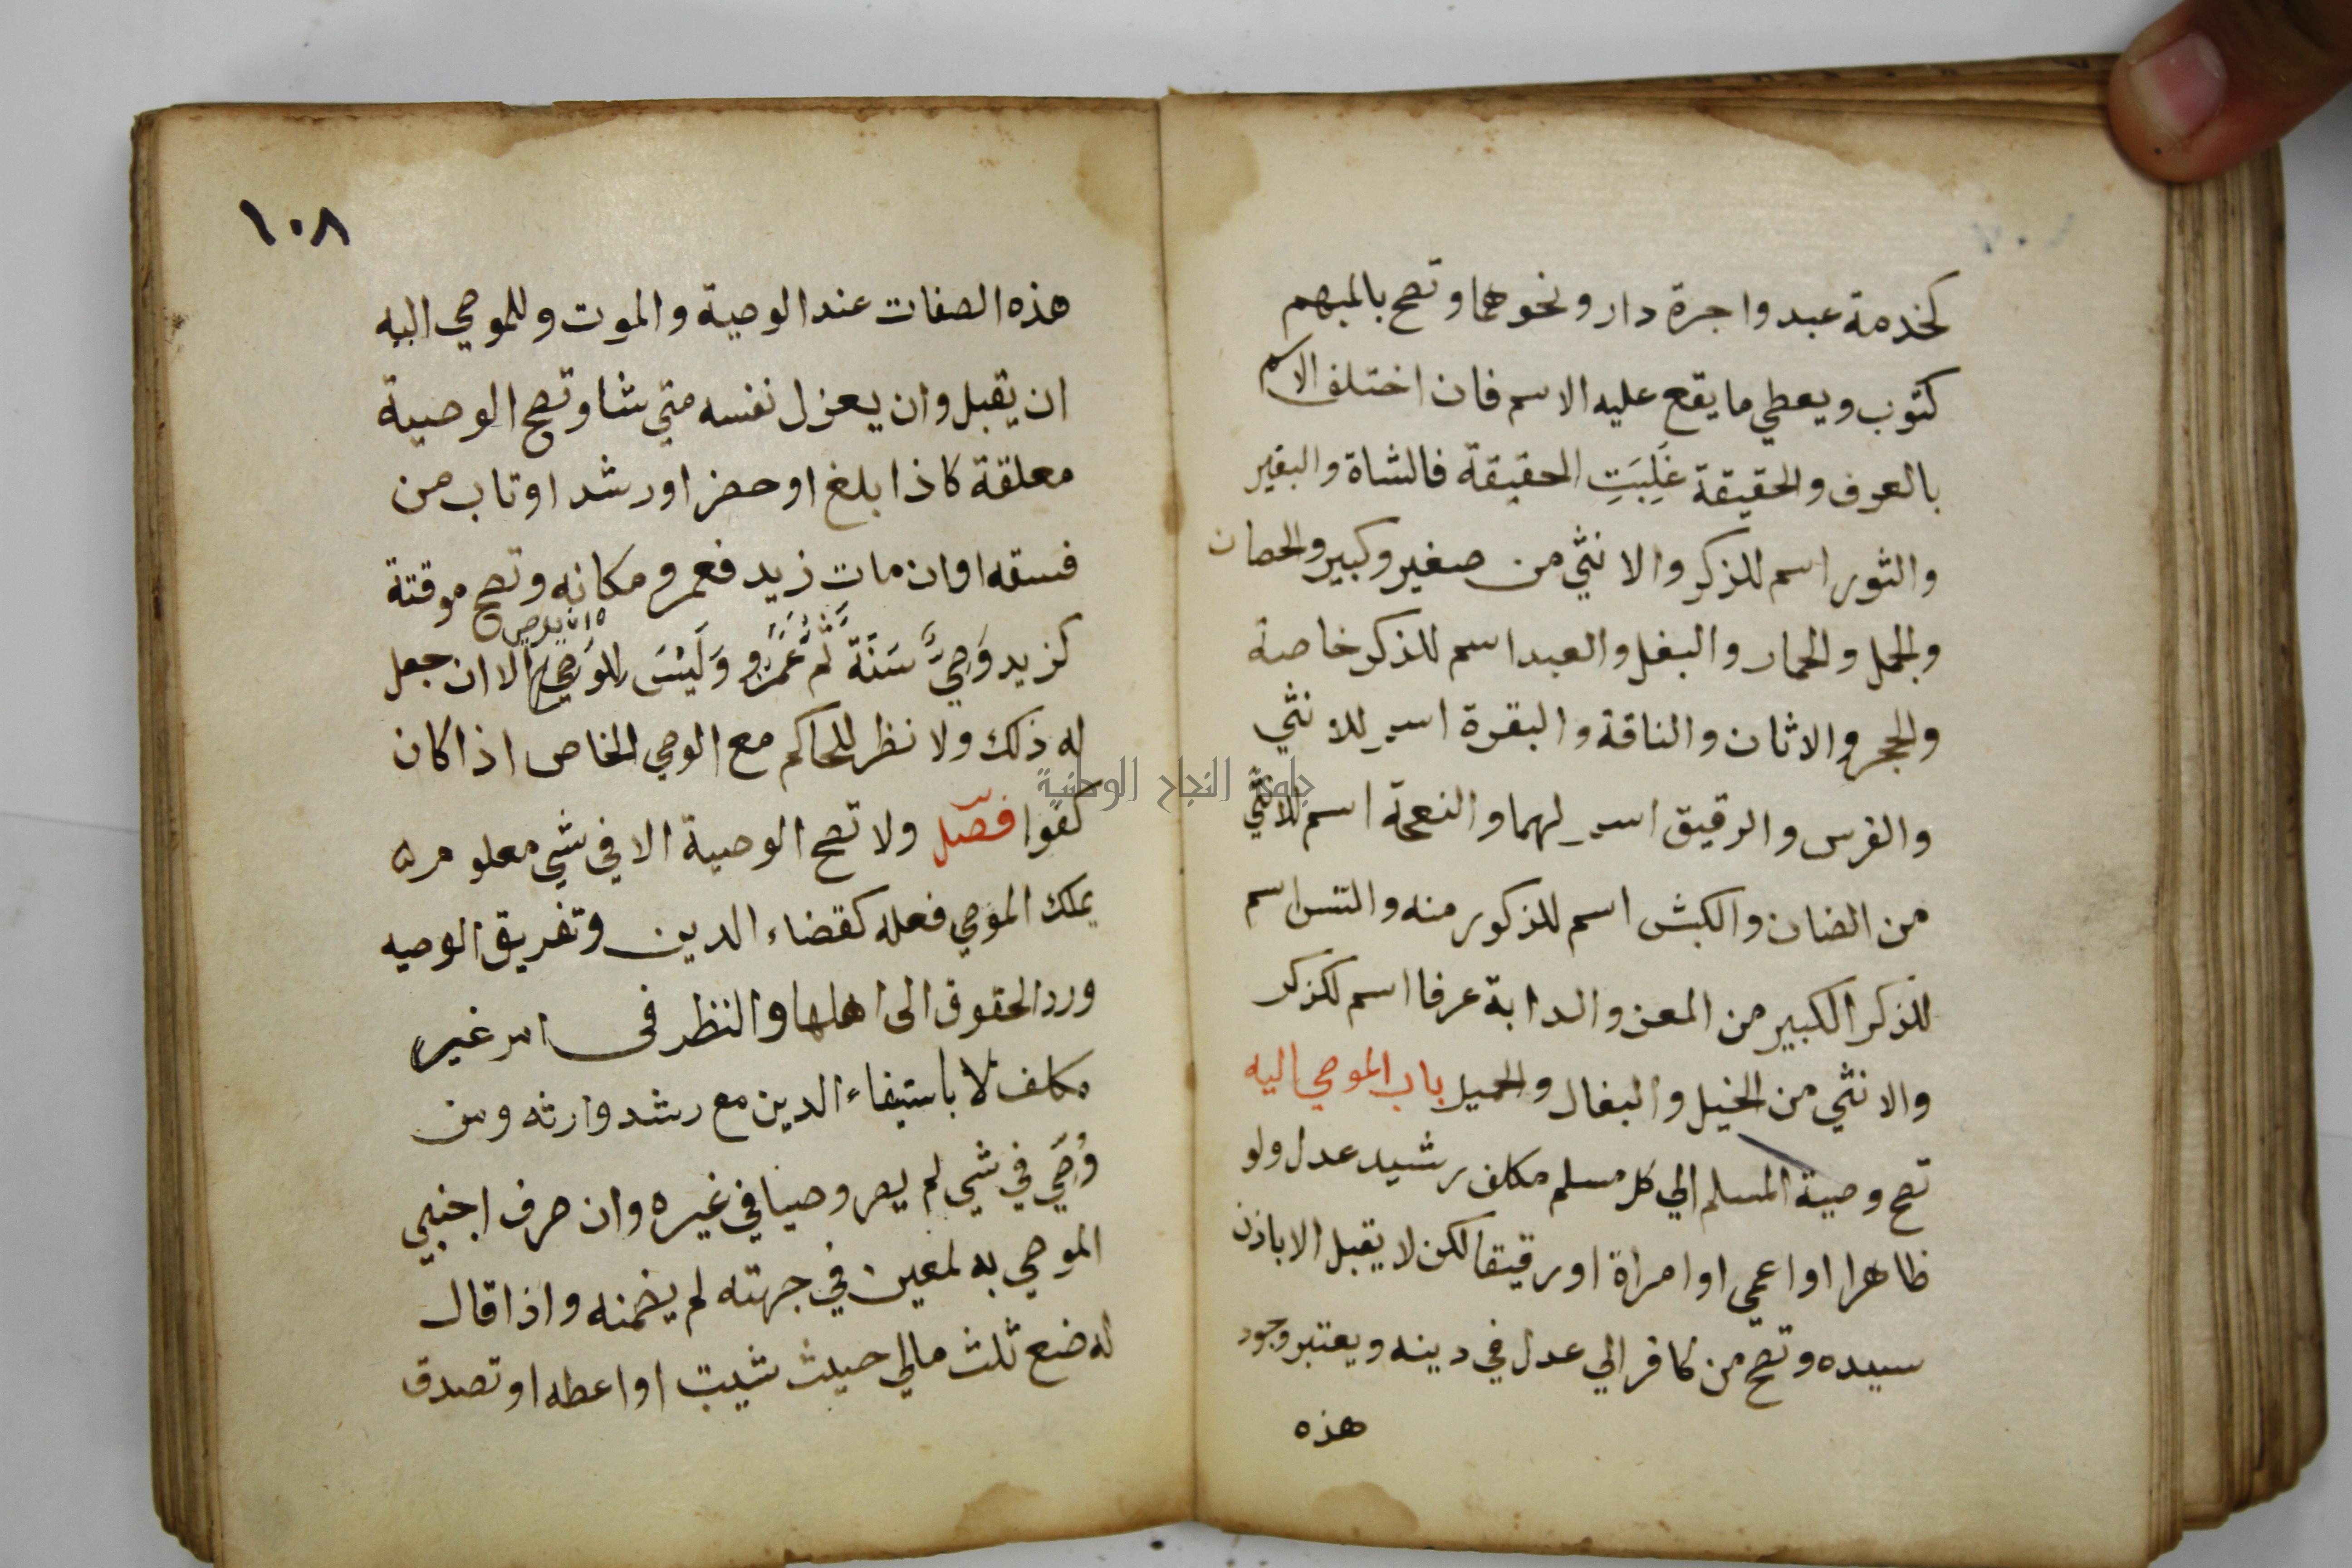 كخدمة عبد واجرة دار ونحوهما وتصح بالمبهم
كثوب ويعطي ما يقع عليه الاسم فان اختلف الاسم
بالعرف والحقيقة غَلِبَتِ الحقيقة فالشاة والبقير
والثور اسم للذكر والانثي من صغير وكبير والحصان
والجمل والحمار والبغل والعبد اسم للذكر خاصة
والحجر والاثان والناقة والبقرة اسم للانثي
والفرس والرقيق اسم لهما والنعجة اسم للانثي
من الضان والكبش اسم للذكور منه والتيس اسم
للذكر الكبير من المعز والدابة عرفا اسم لكذكر
والانثي من الخيل والبغال والحمير باب الموصي اليه
تصح وصية المسلم الي كل مسلم مكلف رشيد عدل ولو
ظاهرا او اعمي او امراة او رقيقا لكن لا يقبل الا باذن
سيده وتصح من كافر الي عدل في دينه ويعتبر وجود
هذه
١٠٨
هذه الصفات عند الوصية والموت وللموصي اليه
ان يقبل وان يعزل نفسه متي شا وتصح الوصية
معلقة كاذا بلغ او حضر او رشد او تاب من
فسقه او ان مات زيد فعمرو مكانه وتصح موقتة
كزيد وَصِيٌّ سَنَةً ثُمَّ عَمْرٌو وَلَيْسَ لِلوَصِيِّ ان يوصي الا ان جعل
له ذلك ولا نظر للحاكم مع الوصي الخاص اذا كان
كفوا فصل ولا تصح الوصية الا في شي معلوم
يملك الموصي فعله كقضاء الدين وتفريق الوصيه
ورد الحقوق الى اهلها والنظر في امر غير
مكلف لا باستيفاء الدين مع رشد وارثه ومن
وُصِّيَ في شي لم يصر وصيا في غيره وان صرف اجنبي
الموصي به لمعين في جهته لم يضمنه واذا قال
له ضع ثلث مالي حيث شيت او اعطه او تصدق
جامعة النجاح الوطنية